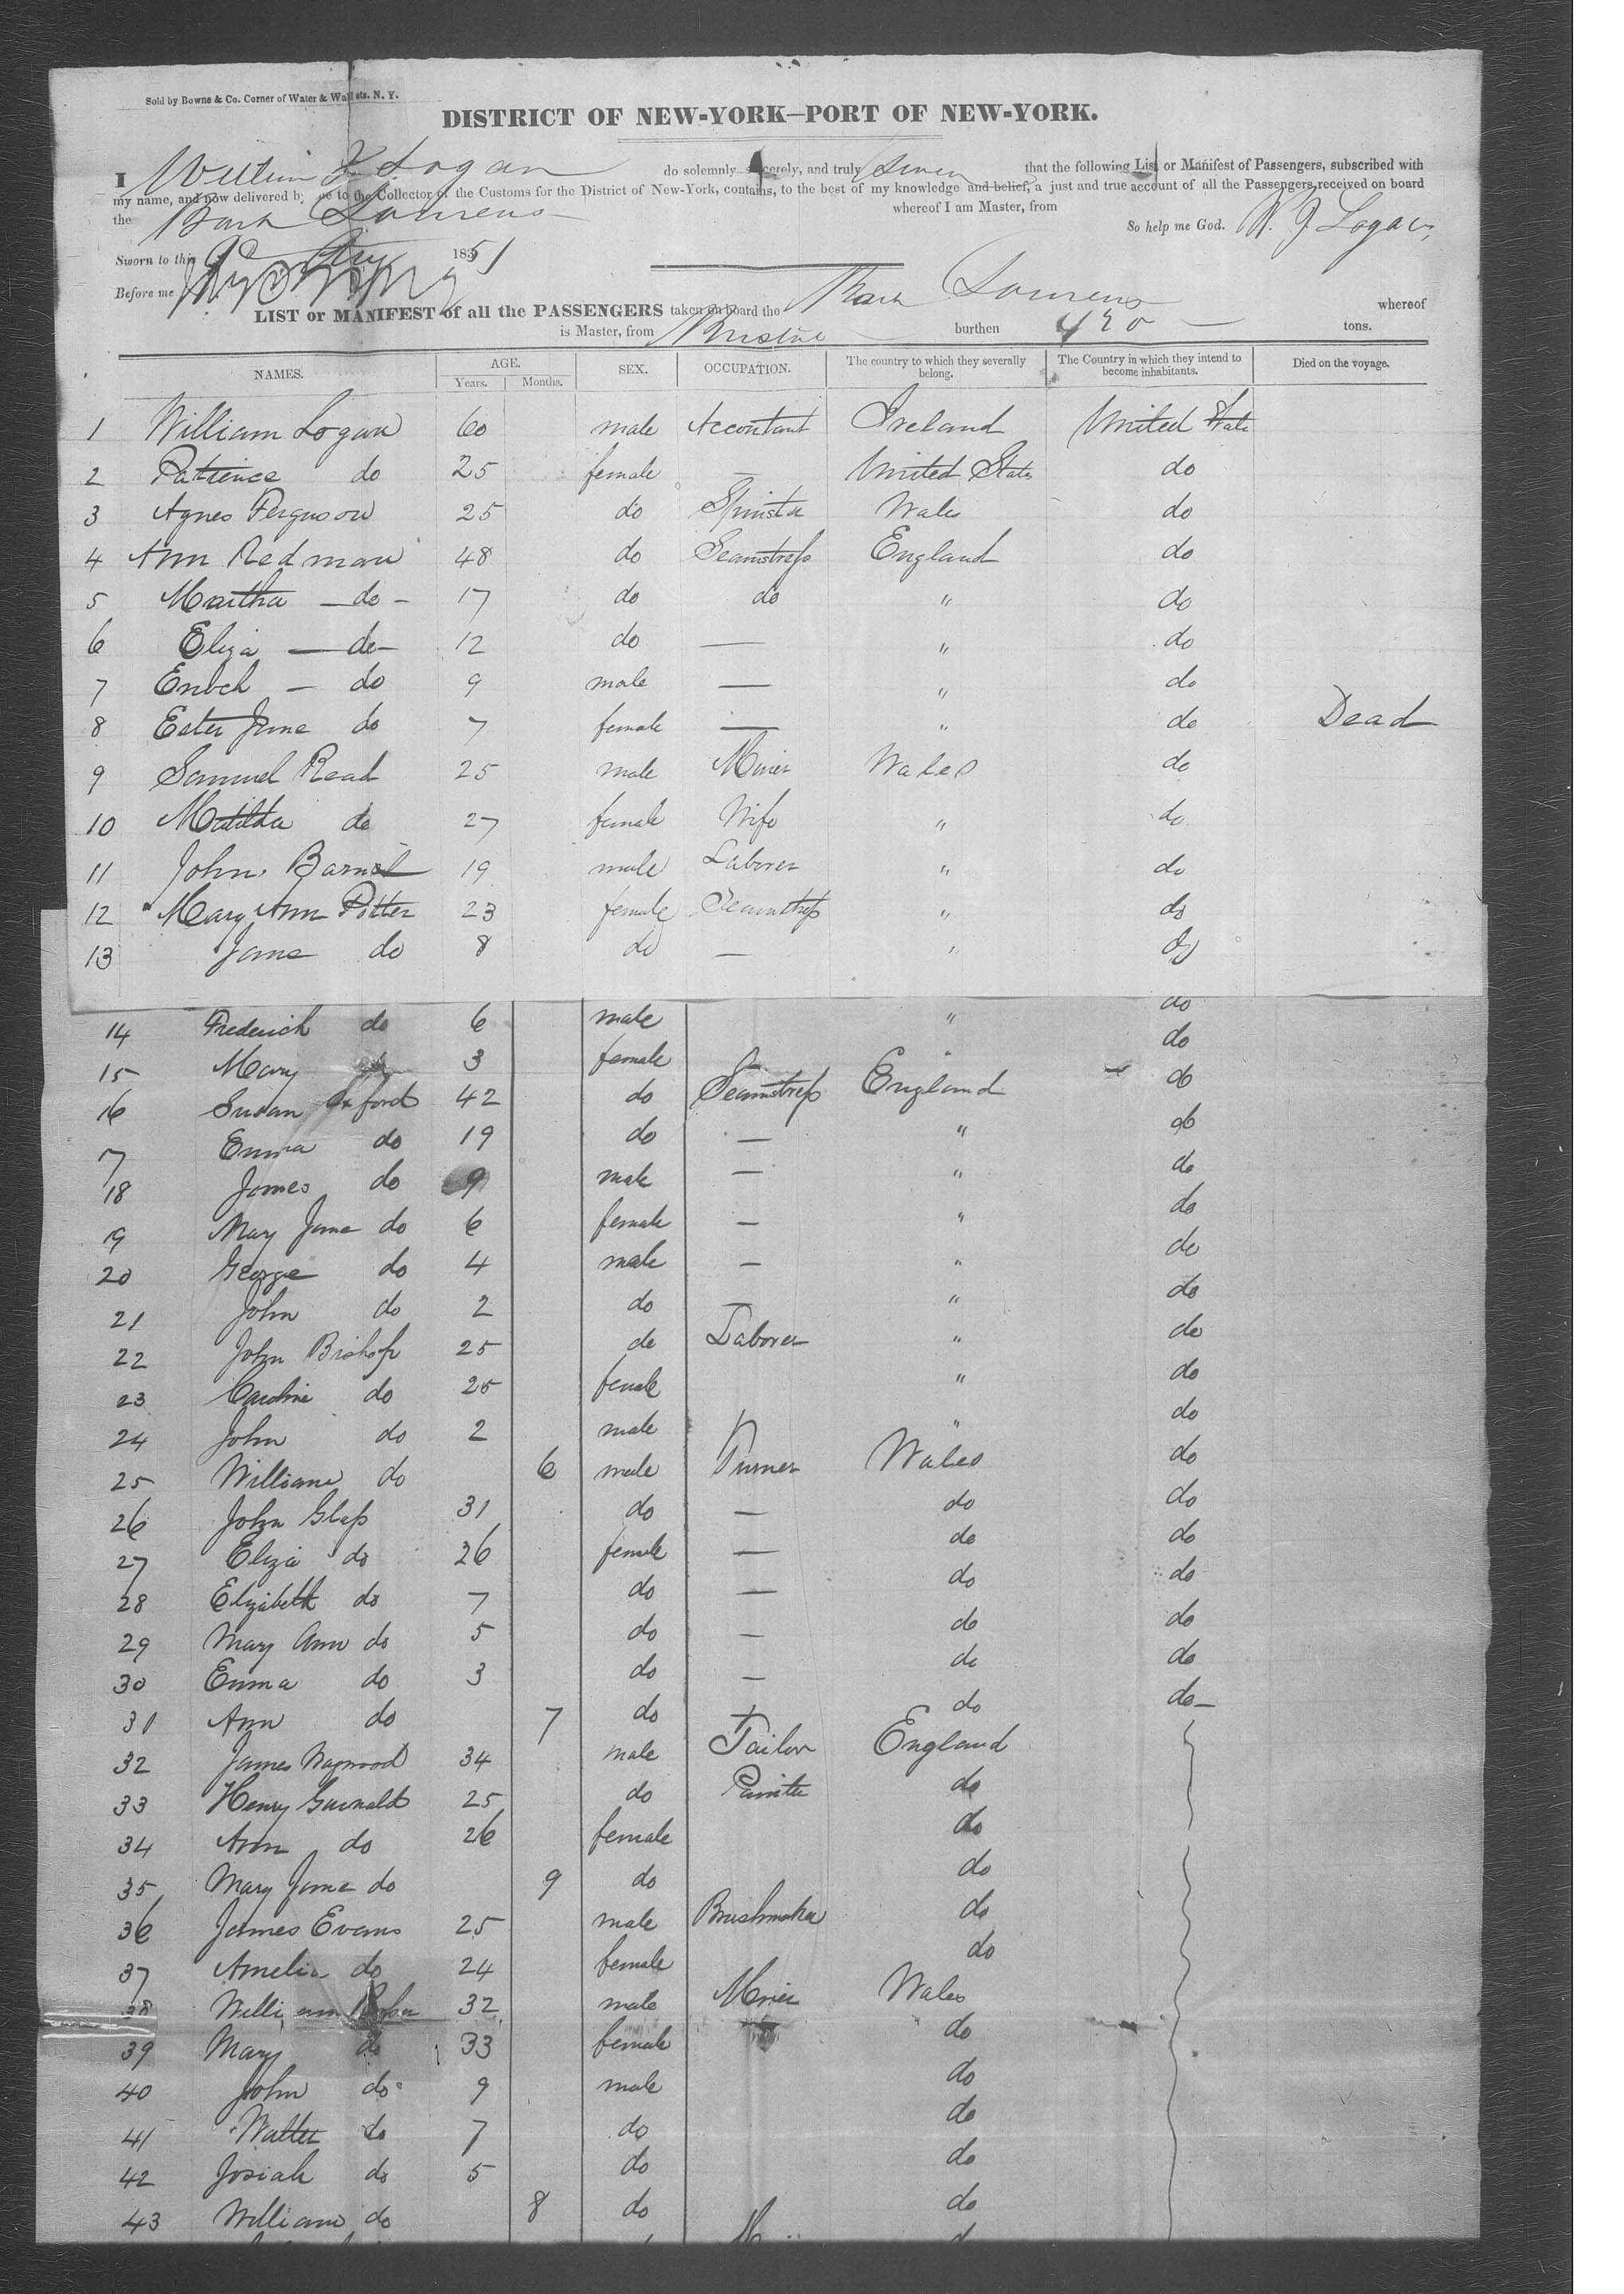 Sold by Bowne & Co. Corner of Water & Wall sts. N. Y.
DISTRICT OF NEW-YORK—PORT OF NEW-YORK.
I William J Logan do solemnly, sincerely, and truly Swear that the following List or Manifest of Passengers, subscribed with
my name, and now delivered by me to the Collector of the Customs for the District of New-York, contains, to the best of my knowledge and belief, a just and true account of all the Passengers received on board
the Bark whereof I am Master, from
So help me God. W. J Logan,
Sworn to this 185 1
Before me
LIST or MANIFEST of all the PASSENGERS taken on board the Bark whereof
is Master, from Bristol burthen tons.
NAMES. AGE. SEX. OCCUPATION. The country to which they severally belong. The Country in which they intend to become inhabitants. Died on the voyage.
Years. Months.
1 William Logan 60 male Accontant Ireland United State
2 Patience do 25 female — United States do
3 Agnes Ferguson 25 do Spinster Wales do
4 Ann Redman 48 do Seamstress England do
5 Martha —do— 17 do do " do
6 Eliza —do— 12 do — " do
7 Enoch — do 9 male — " do
8 Ester Jane do 7 female — " do Dead
9 Samuel Read 25 male Miner Wales do
10 Matilda do 27 female Wife " do
11 John 19 male Laborer " do
12 Mary Ann Potter 23 female Seamstress " do
13 Jane do 8 do — " do
14 Frederick do 6 male " do
15 Mary do 3 female do
16 Susan Oxford 42 do Seamstress England do
17 Emma do 19 do — " do
18 James do 9 male — " do
19 Mary Jane do 6 female — " do
20 George do 4 male — " do
21 John do 2 do — " do
22 John Bishop 25 do Laborer " do
23 Caroline do 25 female " do
24 John do 2 male " do
25 William do 6 male Turner Wales do
26 John Glass 31 do — do do
27 Eliza do 26 female — do do
28 Elizabeth do 7 do — do do
29 Mary Ann do 5 do — do do
30 Emma do 3 do — do do
31 Ann do 7 do — do do—
32 James 34 male Tailor England
33 Henry 25 do Painter do
34 Ann do 26 female do
35 Mary Jane do 9 do do
36 James Evans 25 male Brushmaker do
37 Amelia do 24 female do
38 William 32 male Miner Wales
39 Mary do 33 female do
40 John do 9 male do
41 Walter do 7 do do
42 Josiah do 5 do do
43 William do 8 do do